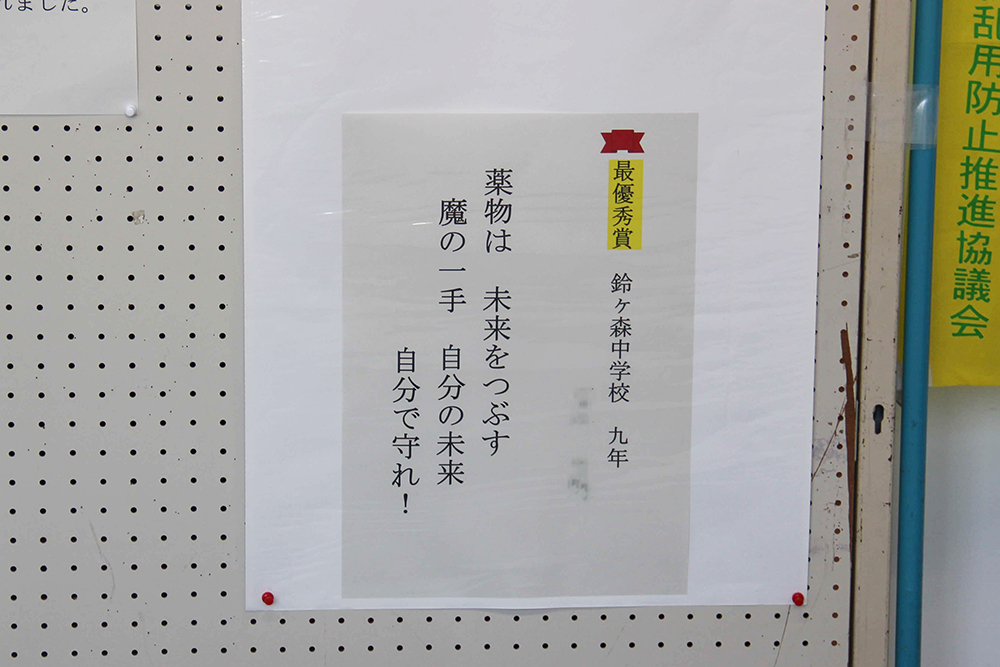 れました。
最優秀賞　鈴ヶ森中学校　九年
薬物は　未来をつぶす
魔の一手　自分の未来
自分で守れ！
乱用防止推進協議会